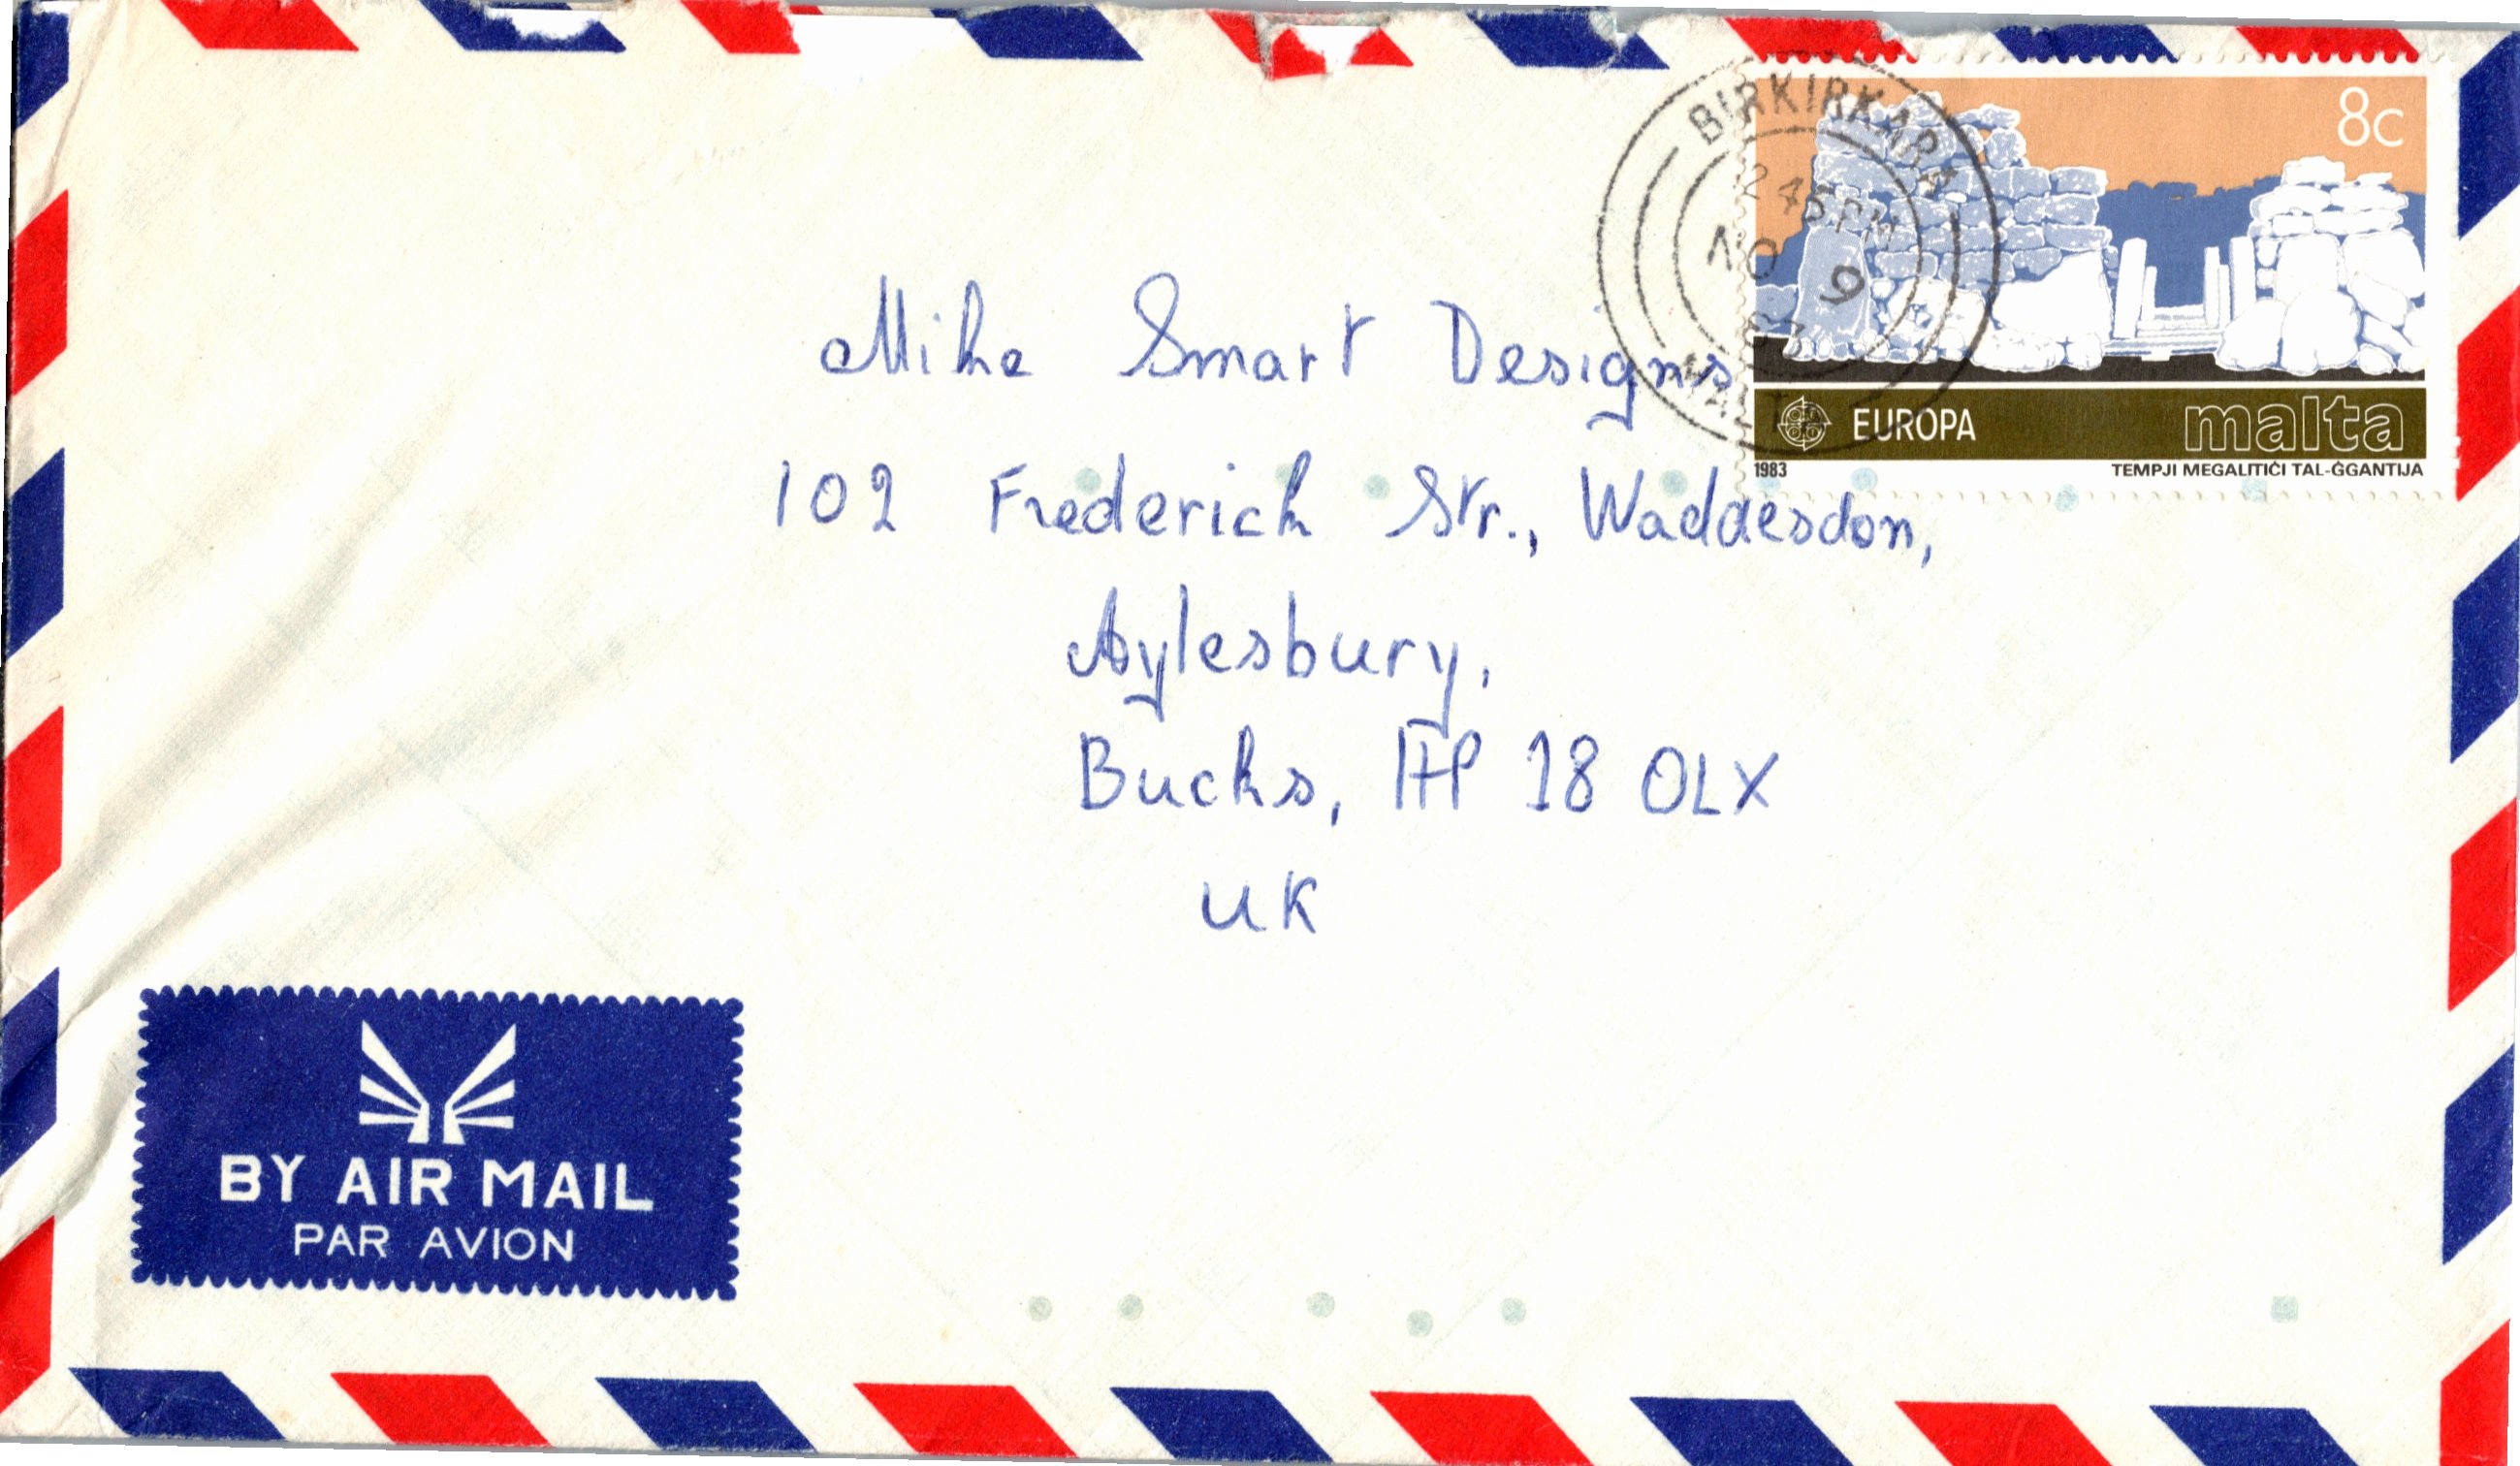 BIRKIRKARA
2 45 PM
10 9
83
MALTA
8c
EUROPA malta
1983 TEMPJI MEGALITIĊI TAL-ĠGANTIJA
Mike Smart Designs
102 Frederick Str., Waddesdon,
Aylesbury,
Bucks, HP 18 0LX
UK
BY AIR MAIL
PAR AVION